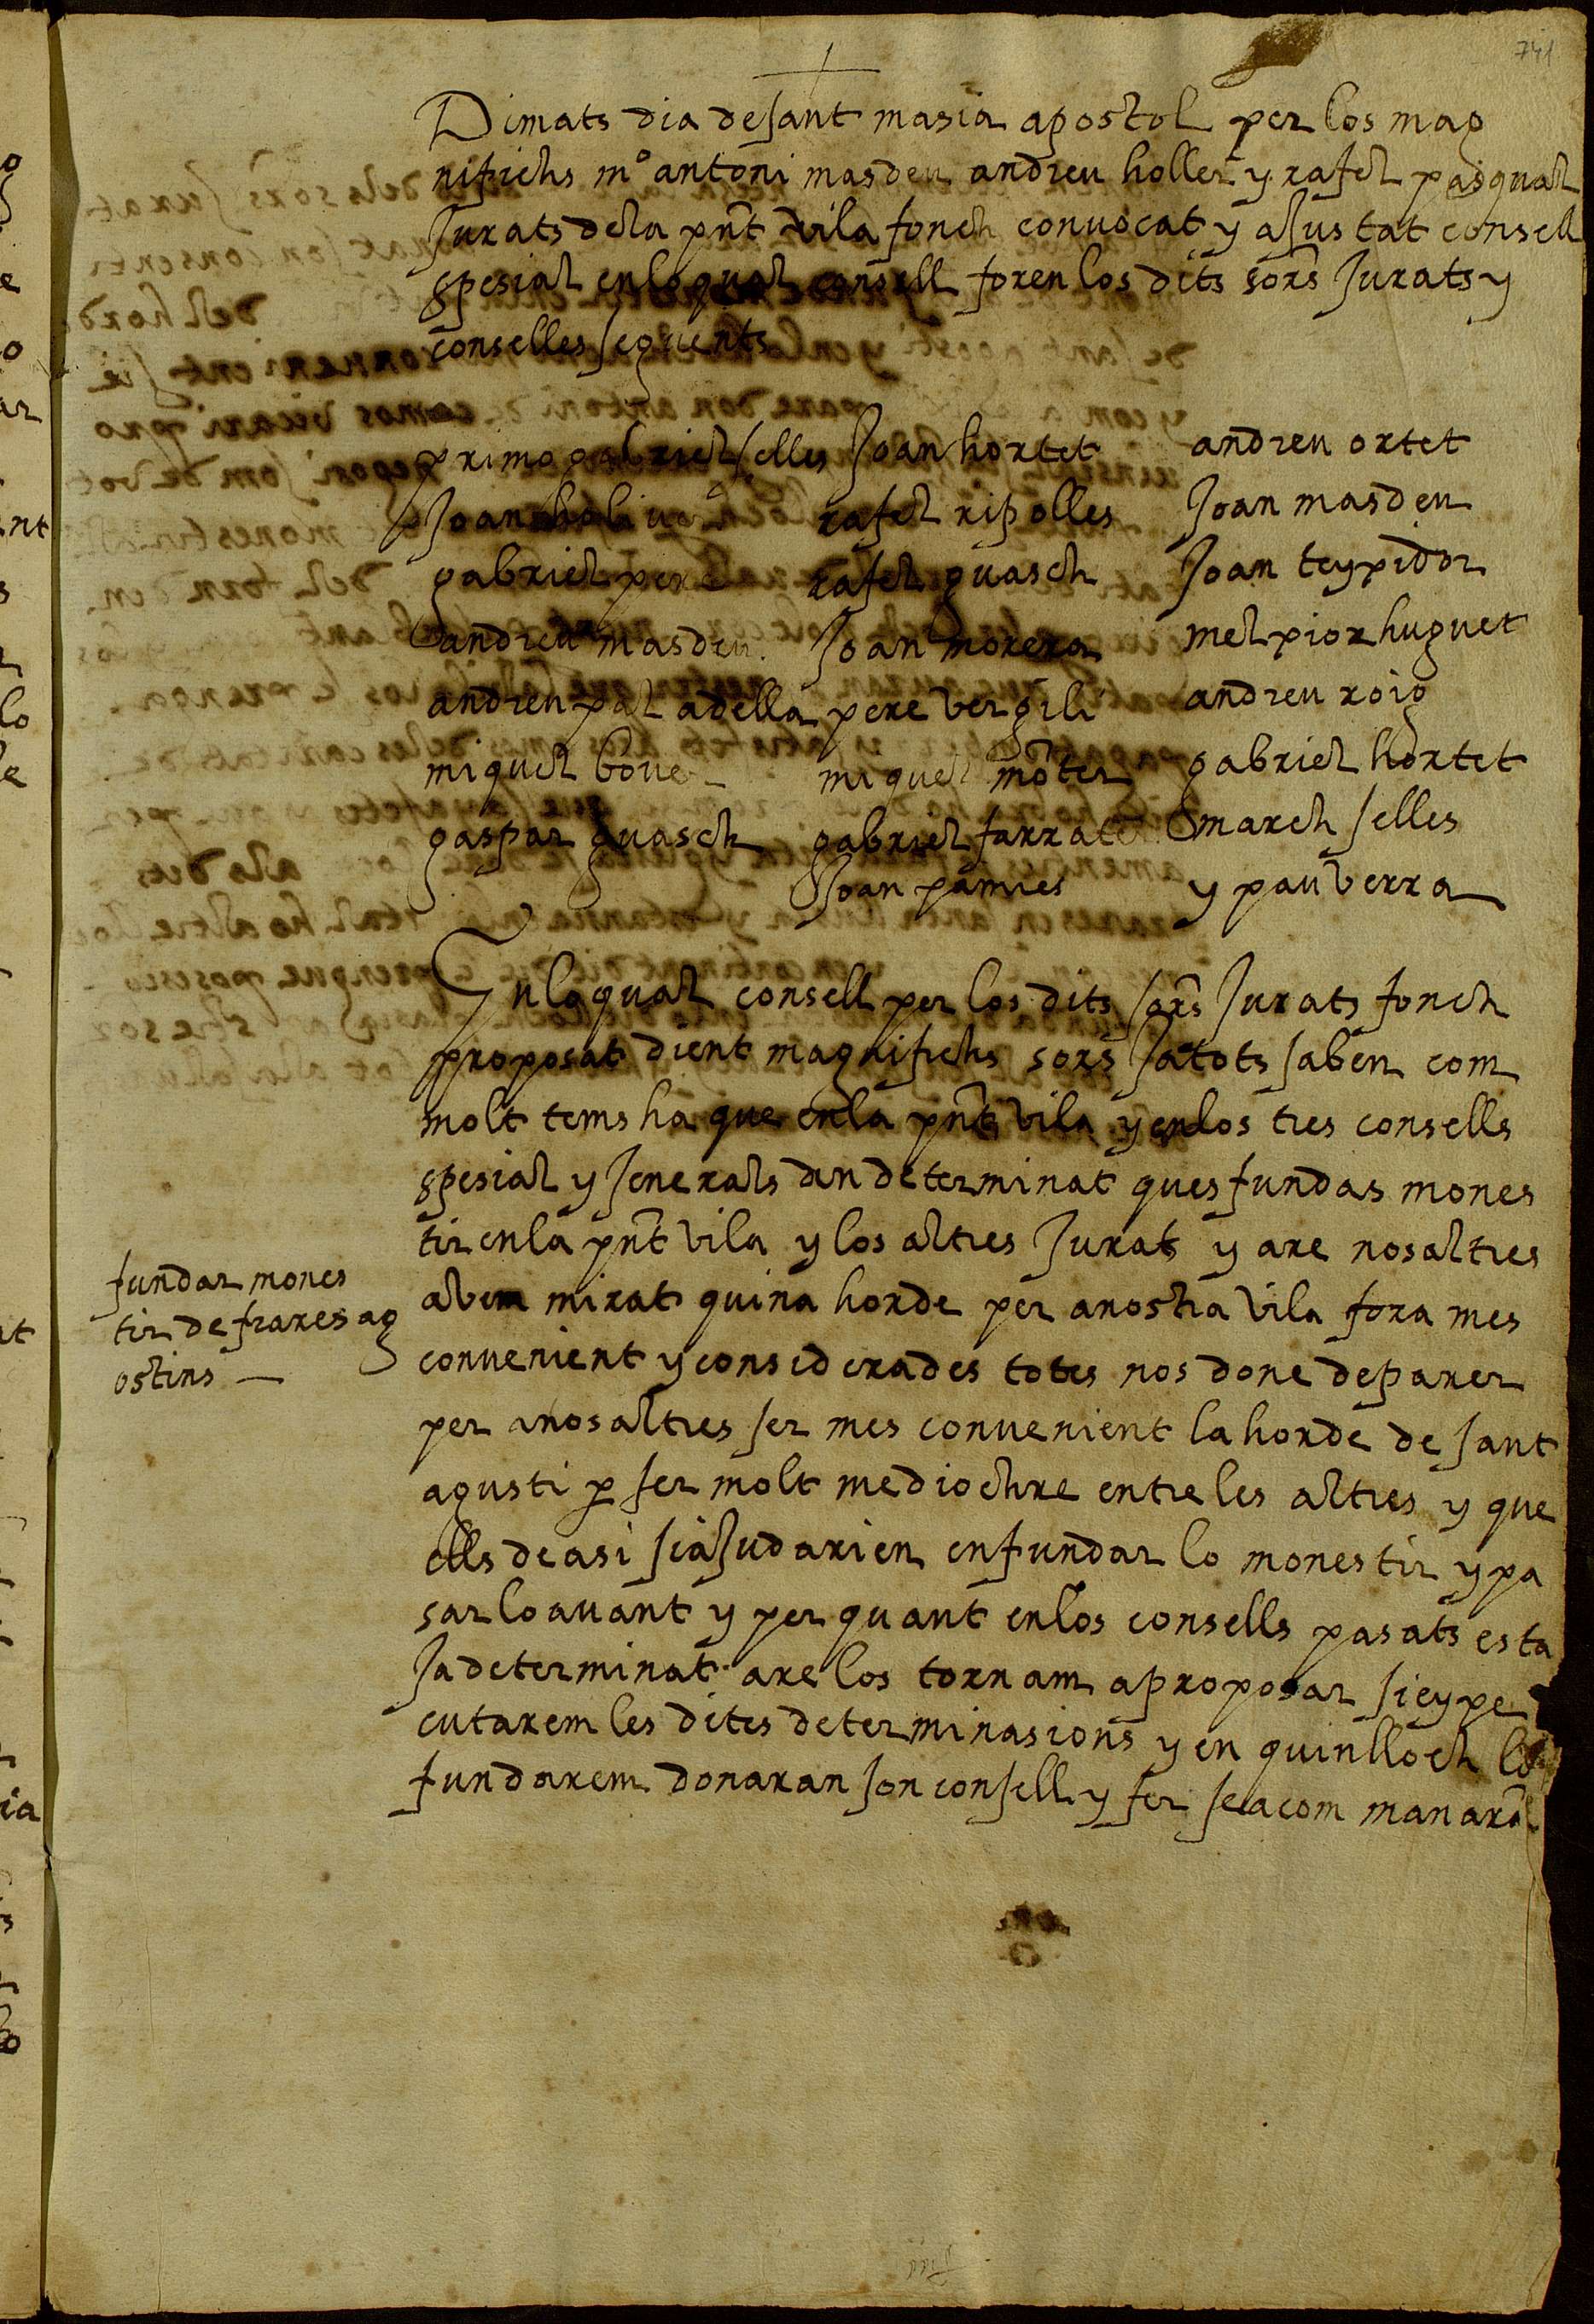 741
Dimats dia de sant masia apostol per los mag
nifichs mº antoni masdeu andreu holler y rafel pasqual
Jurats dela pnt vila fonch convocat y aJustat consell
spesial enloqual consell foren los dits sors Jurats y
conselles seguents
primo gabriel selles Joan hortet andreu ortet
Joan rafel ripolles Joan masdeu
gabriel pere rafel guasch Joan teypidor
andreu masdeu Joan morera melpior huguet
andreu paladella pere vergili andreu roig
miquel bove miquel moter gabriel hortet
gaspar guasch gabriel farrate march selles
Joan pamies y pau verra
En loqual consell per los dits sors Jurats fonch
proposat dient magnifichs sors Ja tots saben com
molt tems ha que enla pnt vila y enlos tres consells
spesial y Jenerals an determinat ques fundas mones
tir enla pnt vila y los altres Jurats y are nosaltres
avem mirat quina horde per anostra vila fora mes
convenient y considerades totes nos done deparer
per anosaltres ser mes convenient la horde de sant
agusti p ser molt mediochre entre les altres y que
ells de asi siaJudarien enfundar lo monestir y pa
sar lo avant y per quant enlos consells pasats esta
Ja determinat are los tornam aproposar si eype
cutarem les dites determinasions y en quin lloch lo
fundarem donaran son consell y fer sea com manaran
fundar mones
tir de frares ag
ostins